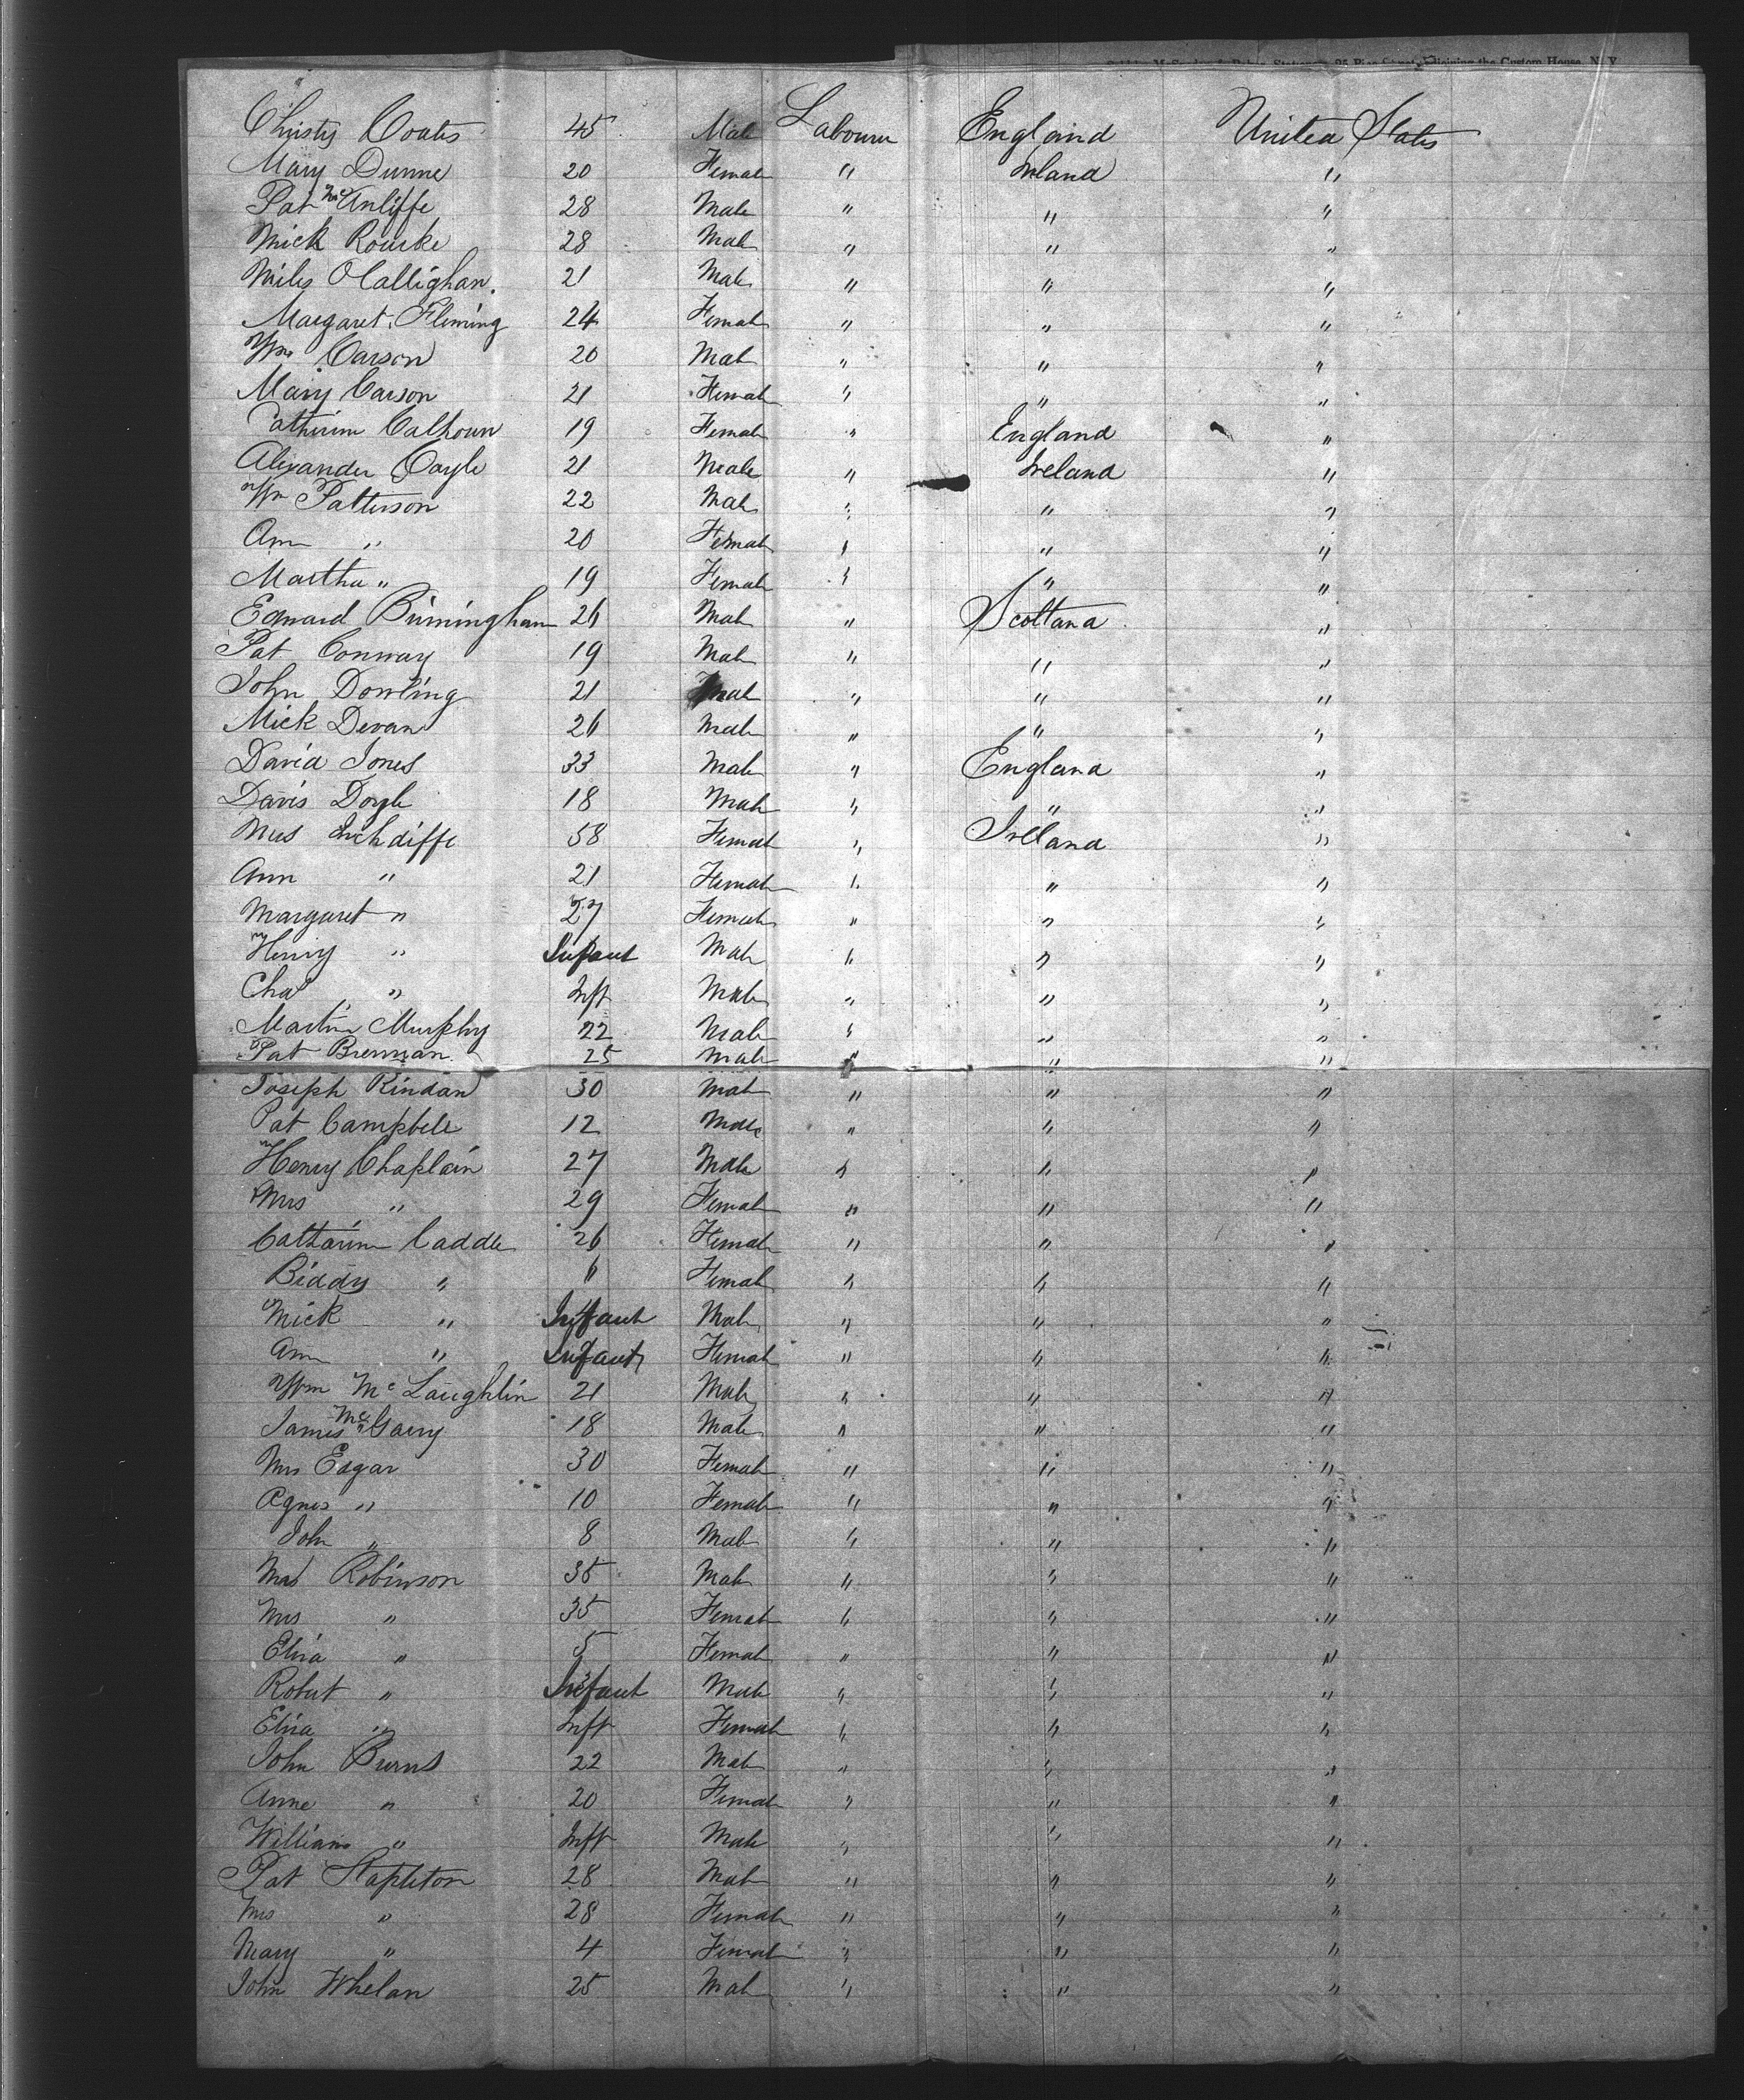 Christy Coates 45 Male Labourer England United States
Mary Dunne 20 Female " Ireland "
Pat McAnliffe 28 Male " " "
Mick Rourke 28 Male " " "
Miles OCallighan. 21 Male " " "
Margaret Fleming 24 Female " " "
Wm Carson 20 Male " " "
Mary Carson 21 Female " " "
Catherine Calhoun 19 Female " England "
Alexander Coyle 21 Male " Ireland "
Wm Patterson 22 Male " " "
Ann " 20 Female " " "
Martha " 19 Female " " "
Edward Birmingham 26 Male " Scotland "
Pat Conway 19 Male " " "
John Dowling 21 Male " " "
Mick Devan 26 Male " " "
David Jones 33 Male " England "
Davis Doyle 18 Male " " "
Mrs 58 Female " Ireland "
Ann " 21 Female " " "
Margaret " 27 Female " " "
Henry " Infant Male " " "
Chas " Inft Male " " "
Martin Murphy 22 Male " " "
Pat Brennan 25 Male " " "
Joseph Rindan 30 Male " " "
Pat Campbell 12 Male " " "
Henry Chaplain 27 Male " " "
Mrs " 29 Female " " "
Catharine Caddle 26 Female " " "
Biddy " Female " " "
Mick " Infant Male " " "
Ann " Infant Female " " "
Wm McLaughlin 21 Male " " "
James McGarry 18 Male " " "
Mrs Edgar 30 Female " " "
Agnes " 10 Female " " "
John " 8 Male " " "
Robinson 35 Male " " "
Mrs " 35 Female " " "
Eliza " 5 Female " " "
Robert " Infant Male " " "
Eliza " Inft Female " " "
John Burns 22 Male " " "
Anne " 20 Female " " "
William " Inft Male " " "
Pat Stapleton 28 Male " " "
Mrs " 28 Female " " "
Mary " 4 Female " " "
John Whelan 25 Male " " "